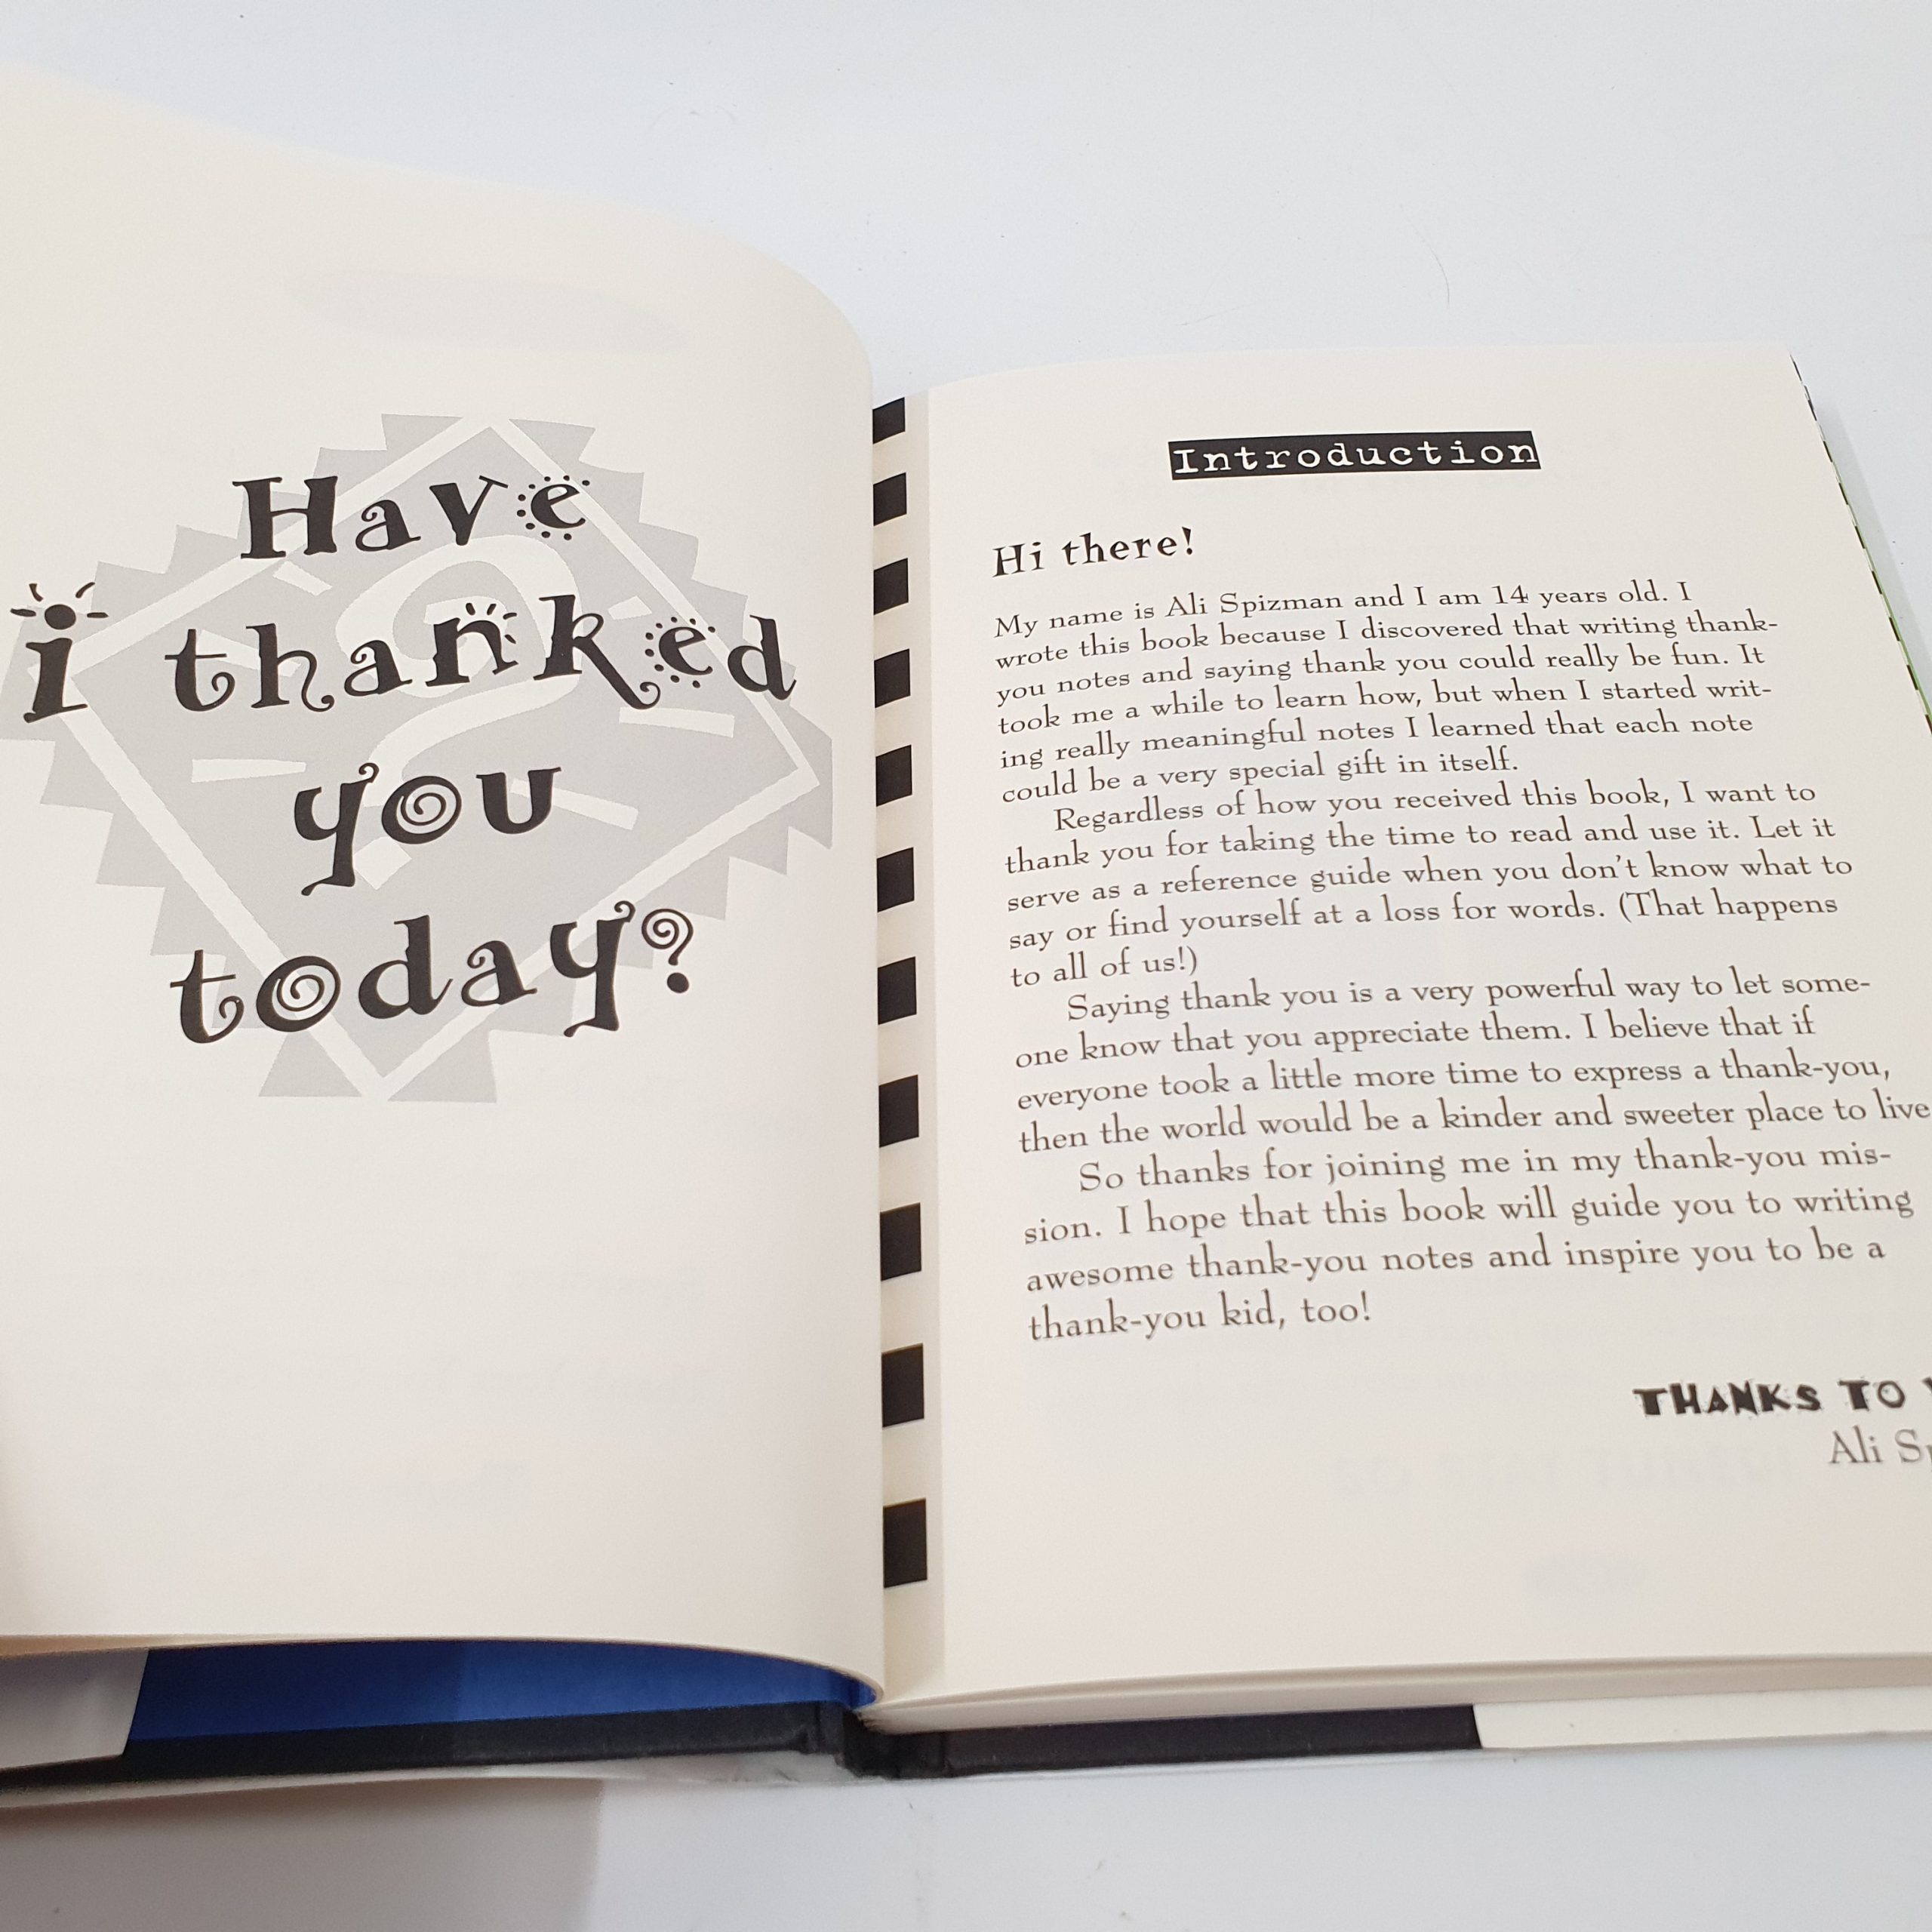 Have
i thanked
you
today?
Introduction
Hi there!
My name is Ali Spizman and I am 14 years old. I
wrote this book because I discovered that writing thank-
you notes and saying thank you could really be fun. It
took me a while to learn how, but when I started writ-
ing really meaningful notes I learned that each note
could be a very special gift in itself.
Regardless of how you received this book, I want to
thank you for taking the time to read and use it. Let it
serve as a reference guide when you don't know what to
say or find yourself at a loss for words. (That happens
to all of us!)
Saying thank you is a very powerful way to let some-
one know that you appreciate them. I believe that if
everyone took a little more time to express a thank-you,
then the world would be a kinder and sweeter place to live
So thanks for joining me in my thank-you mis-
sion. I hope that this book will guide you to writing
awesome thank-you notes and inspire you to be a
thank-you kid, too!
THANKS TO
Ali